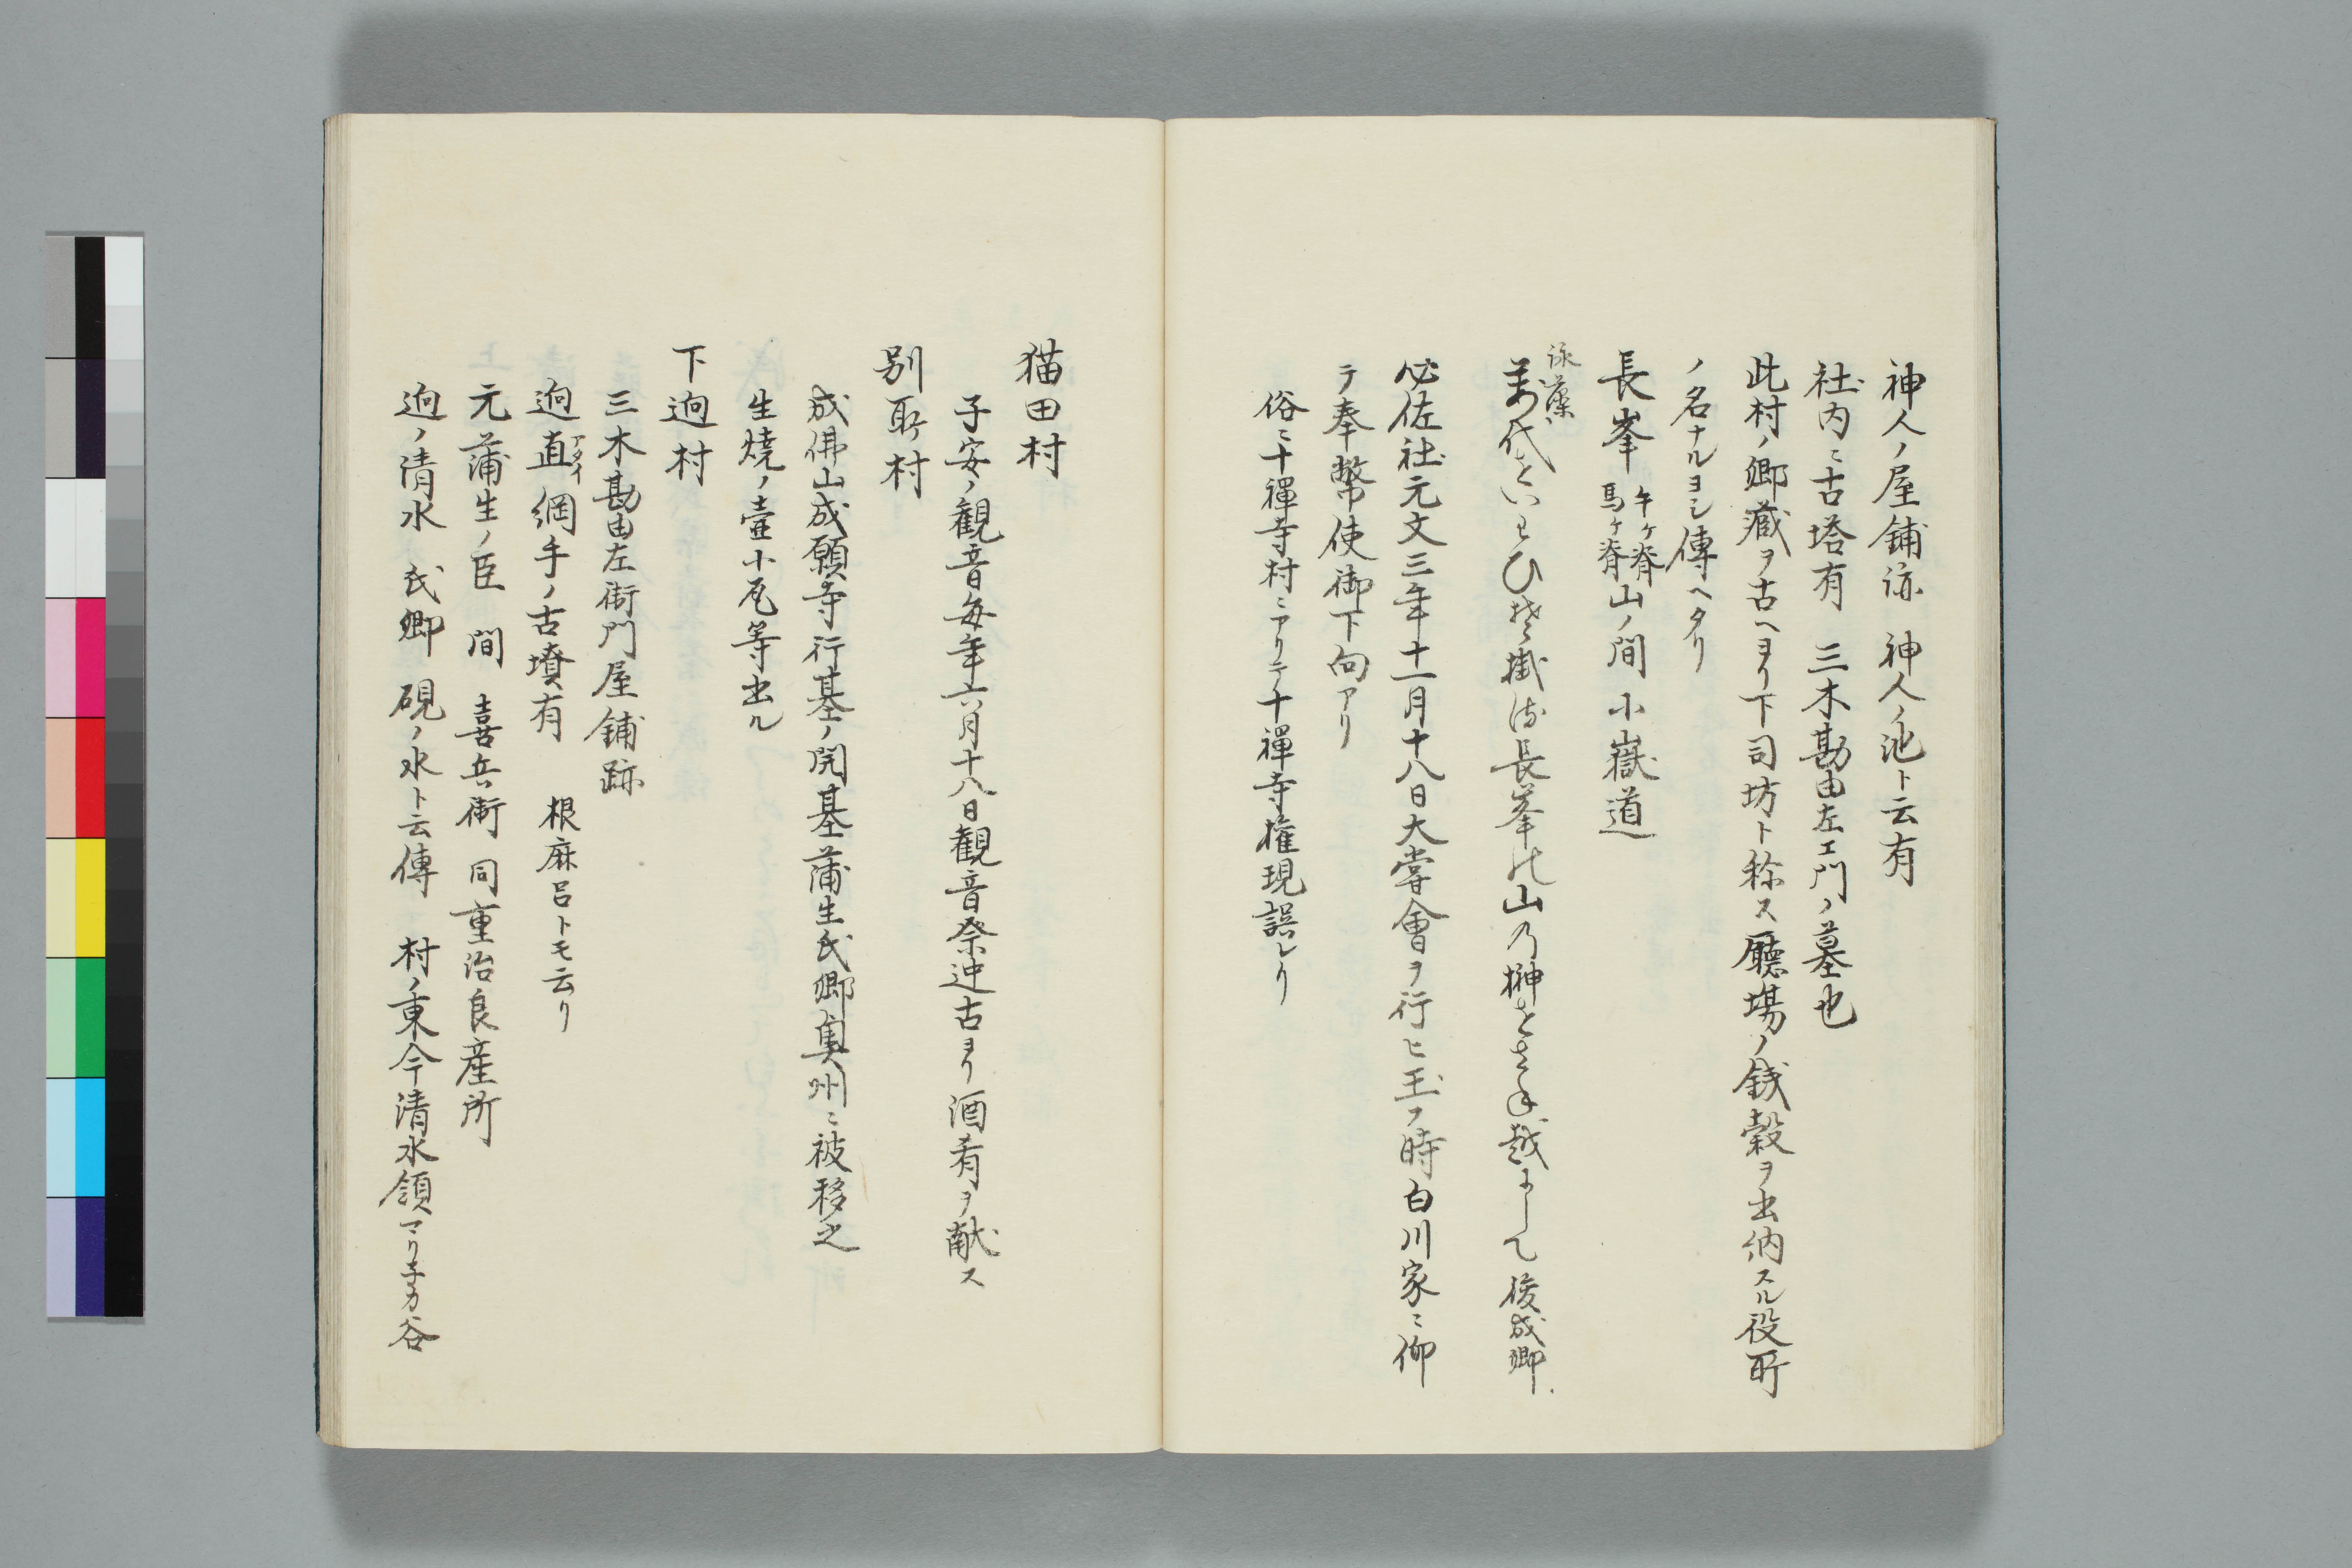 神人ノ屋鋪跡　神人ノ池ト云有
社内ニ古塔有　三木勘由左エ門ノ墓也
此村ノ郷蔵ヲ古ヘヨリ下司坊ト称ス廳場ノ銭穀ヲ出納スル役所
ノ名ナルヨシ傳ヘタリ
長峯　牛ケ脊馬ケ脊山ノ間　小嶽道
詠藻
萬代といはひそ掛る長峯の山乃榊をさね越にして　俊成卿
必佐社元文三年十一月十八日大嘗會ヲ行ヒ玉フ時白川家ニ仰
テ奉幣使御下向アリ
俗ニ十禅寺村ニアリテ十禅寺権現誤レリ
猫田村
子安ノ観音毎年六月十八日観音祭迚古ヨリ酒肴ヲ献ス
別所村
成佛山成願寺行基ノ開基蒲生氏郷奥州ニ被移之
生焼ノ壷小瓦等出ル
下迫村
三木勘由左衛門屋鋪跡
迫直アタイ綱手ノ古墳有　根麻呂トモ云リ
元蒲生ノ臣　間　喜兵衛　同重治良産所
迫ノ清水　氏郷　硯ノ水ト云傳　村ノ東今清水領マリ子カ谷